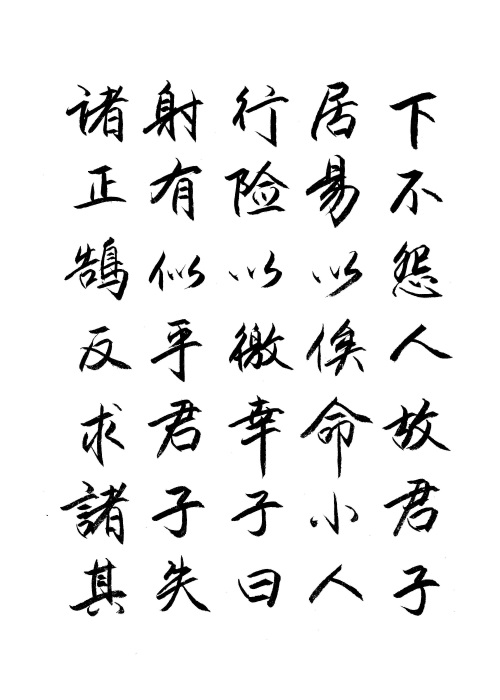 下不怨人故君子
居易以俟命小人
行险以徼幸子曰
射有似乎君子失
诸正鹄反求諸其